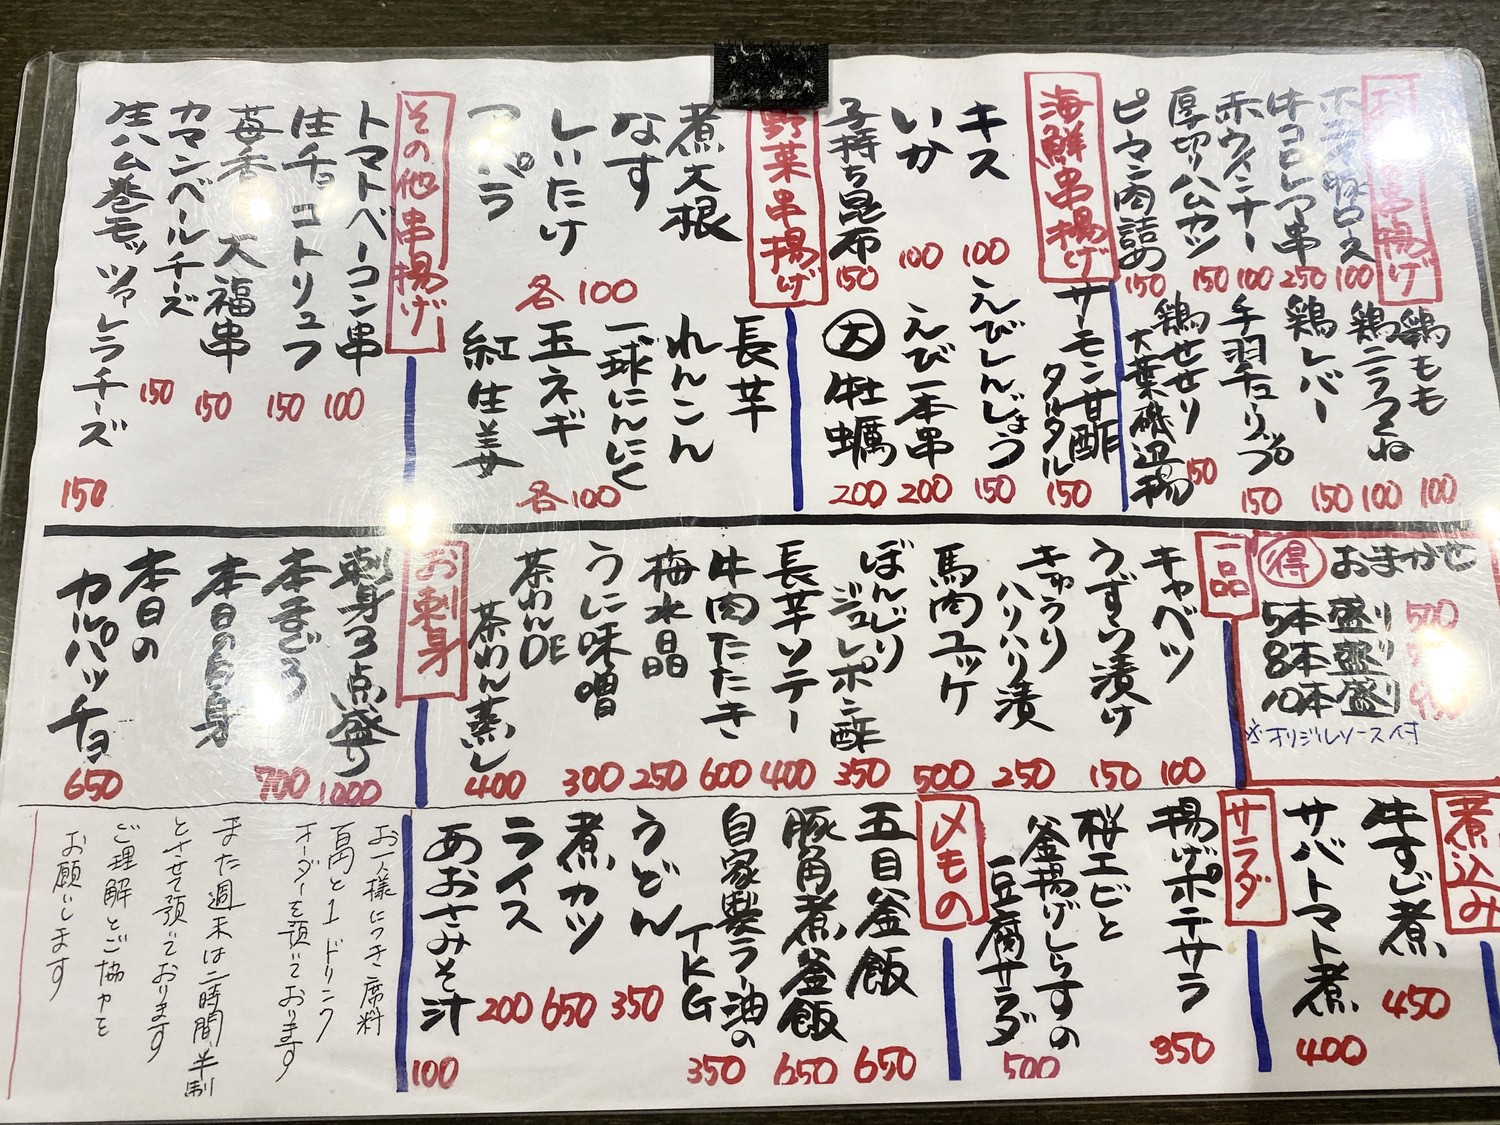 串揚げ
豚ロース 100
牛コロレラ串 250
赤ウインナー 100
厚切りハムカツ 150
ピーマン肉詰め 150
鶏もも 100
鶏ニラつくね 100
鶏レバー 150
手羽チューリップ 150
鶏せせり 150
大葉磯辺揚
海鮮串揚げ
キス 100
いか 100
子持ち昆布 150
サーモン甘酢タルタル 150
えびしんじょう 150
えび一本串 200
大 牡蠣 200
野菜串揚げ
煮大根
なす
しいたけ
つパラ
各100
長芋
れんこん
一球にんにく
玉ネギ
紅生姜
各100
その他串揚げ
トマトベーコン串 100
生チョコトリュフ 150
苺香大福串 150
カマンベールチーズ 150
生ハム巻モッツァレラチーズ 150
得 おまかせ
5本盛り 500
8本盛り
10本盛り
※オリジナルソース付
一品
キャベツ 100
うずら漬け 150
きゅうりハリハリ漬 250
馬肉ユッケ 500
ぼんじりジュレポン酢 350
長芋ソテー 400
牛肉たたき 600
梅水晶 250
うに味噌 300
茶わんDE茶わん蒸し 400
お刺身
刺身3点盛り 1000
本まぐろ 700
本日の白身
本日のカルパッチョ 650
煮込み
牛すじ煮 450
サバトマト煮 400
サラダ
揚げポテサラ 350
桜エビと釜揚げしらすの豆腐サラダ 500
〆もの
五目釜飯 650
豚角煮釜飯 650
自家製ラー油のTKG 350
うどん 350
煮カツ 650
ライス 200
あおさみそ汁 100
お一人様につき席料
百円と1ドリンク
オーダーを頂ております
また週末は二時間半制
とさせて頂ております
ご理解とご協力を
お願いします